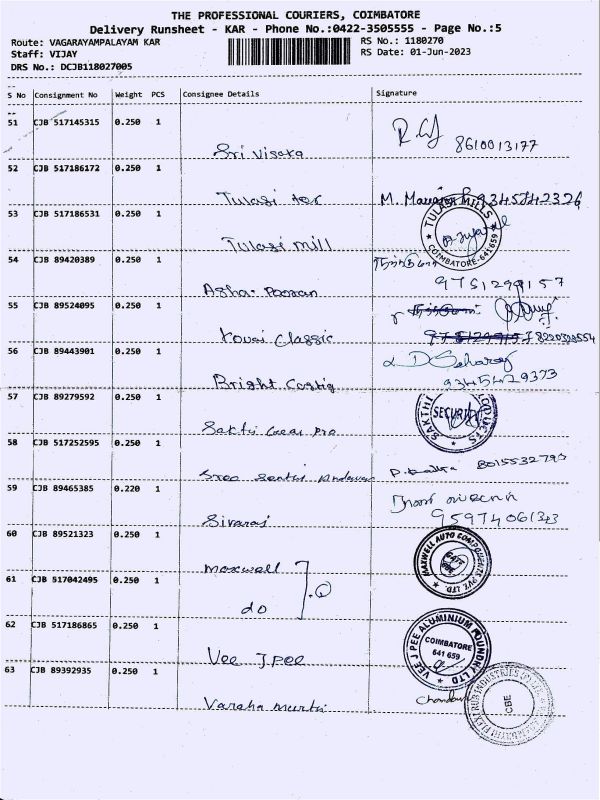 THE PROFESSIONAL COURIERS, COIMBATORE
Delivery Runsheet - KAR - Phone No.:0422-3505555 - Page No.:5
Route: VAGARAYAMPALAYAM KAR
RS No.: 1180270
Staff: VIJAY
RS Date: 01-Jun-2023
DRS No.: DCJB118027005
S No Consignment No Weight PCS Consignee Details Signature
51 CJB 517145315 0.250 1
8610013177
Sri Visaka
52 CJB 517186172 0.250 1
Tulasi tex M. 9345742326
53 CJB 517186531 0.250 1
TULASI MILLS
COIMBATORE-641659
Tulasi mill
54 CJB 89420389 0.250 1
9751299157
55 CJB 89524095 0.250 1
Kovai Classic
56 CJB 89443901 0.250 1
Bright 9345429373
57 CJB 89279592 0.250 1
SAKTHI
SECURITY
Sakthi Gear Pro
58 CJB 517252595 0.250 1
Sree 8015532793
59 CJB 89465385 0.220 1
Sivaraj
60 CJB 89521323 0.250 1
MAXWELL AUTO COMPONENTS PVT. LTD.
Maxwell
61 CJB 517042495 0.250 1
do
62 CJB 517186865 0.250 1
VEE J PEE ALUMINIUM FOUNDRY LTD
COIMBATORE
641 659
Vee J Pee
63 CJB 89392935 0.250 1
CBE
Varaha murthi